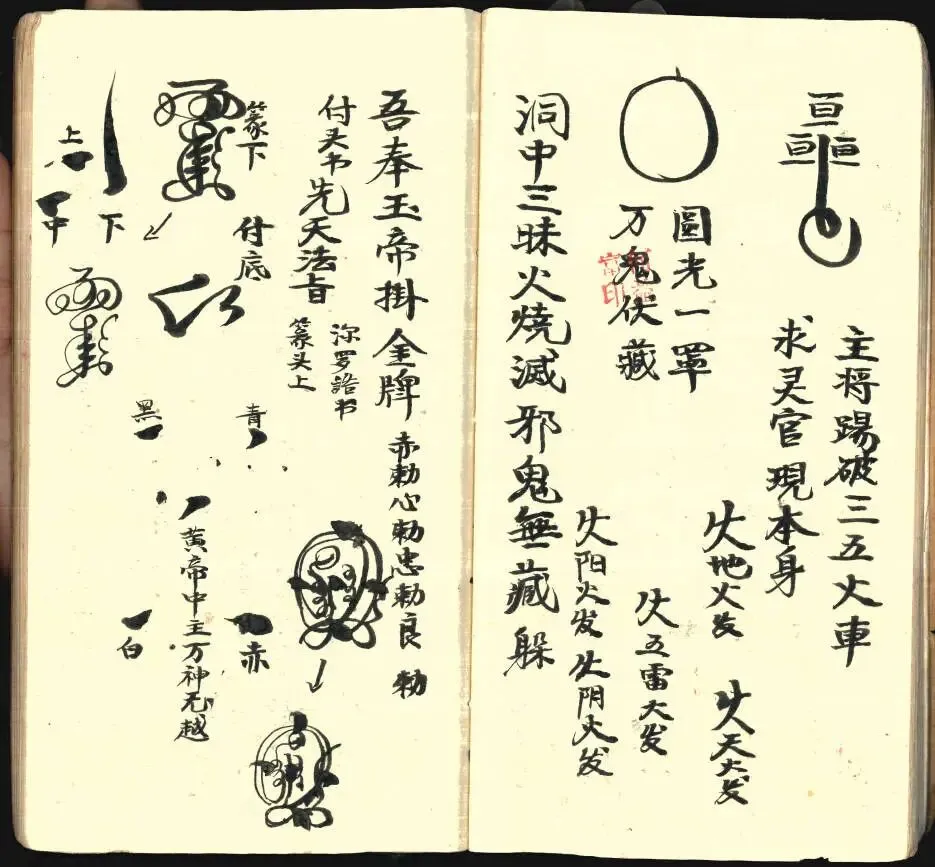 主将踢破三五火車
求灵官現本身
火地火发
火天火发
圓光一罩
万鬼伏藏
火五雷火发
火阳火发 火阴火发
洞中三昧火燒滅邪鬼無藏躲
吾奉玉帝掛金牌 赤勅心勅忠勅良 勅
付头书先天法旨
弥罗誥书
篆头上
篆下
付底
上
中
下
青
黑
黄帝中主万神无越
赤
白